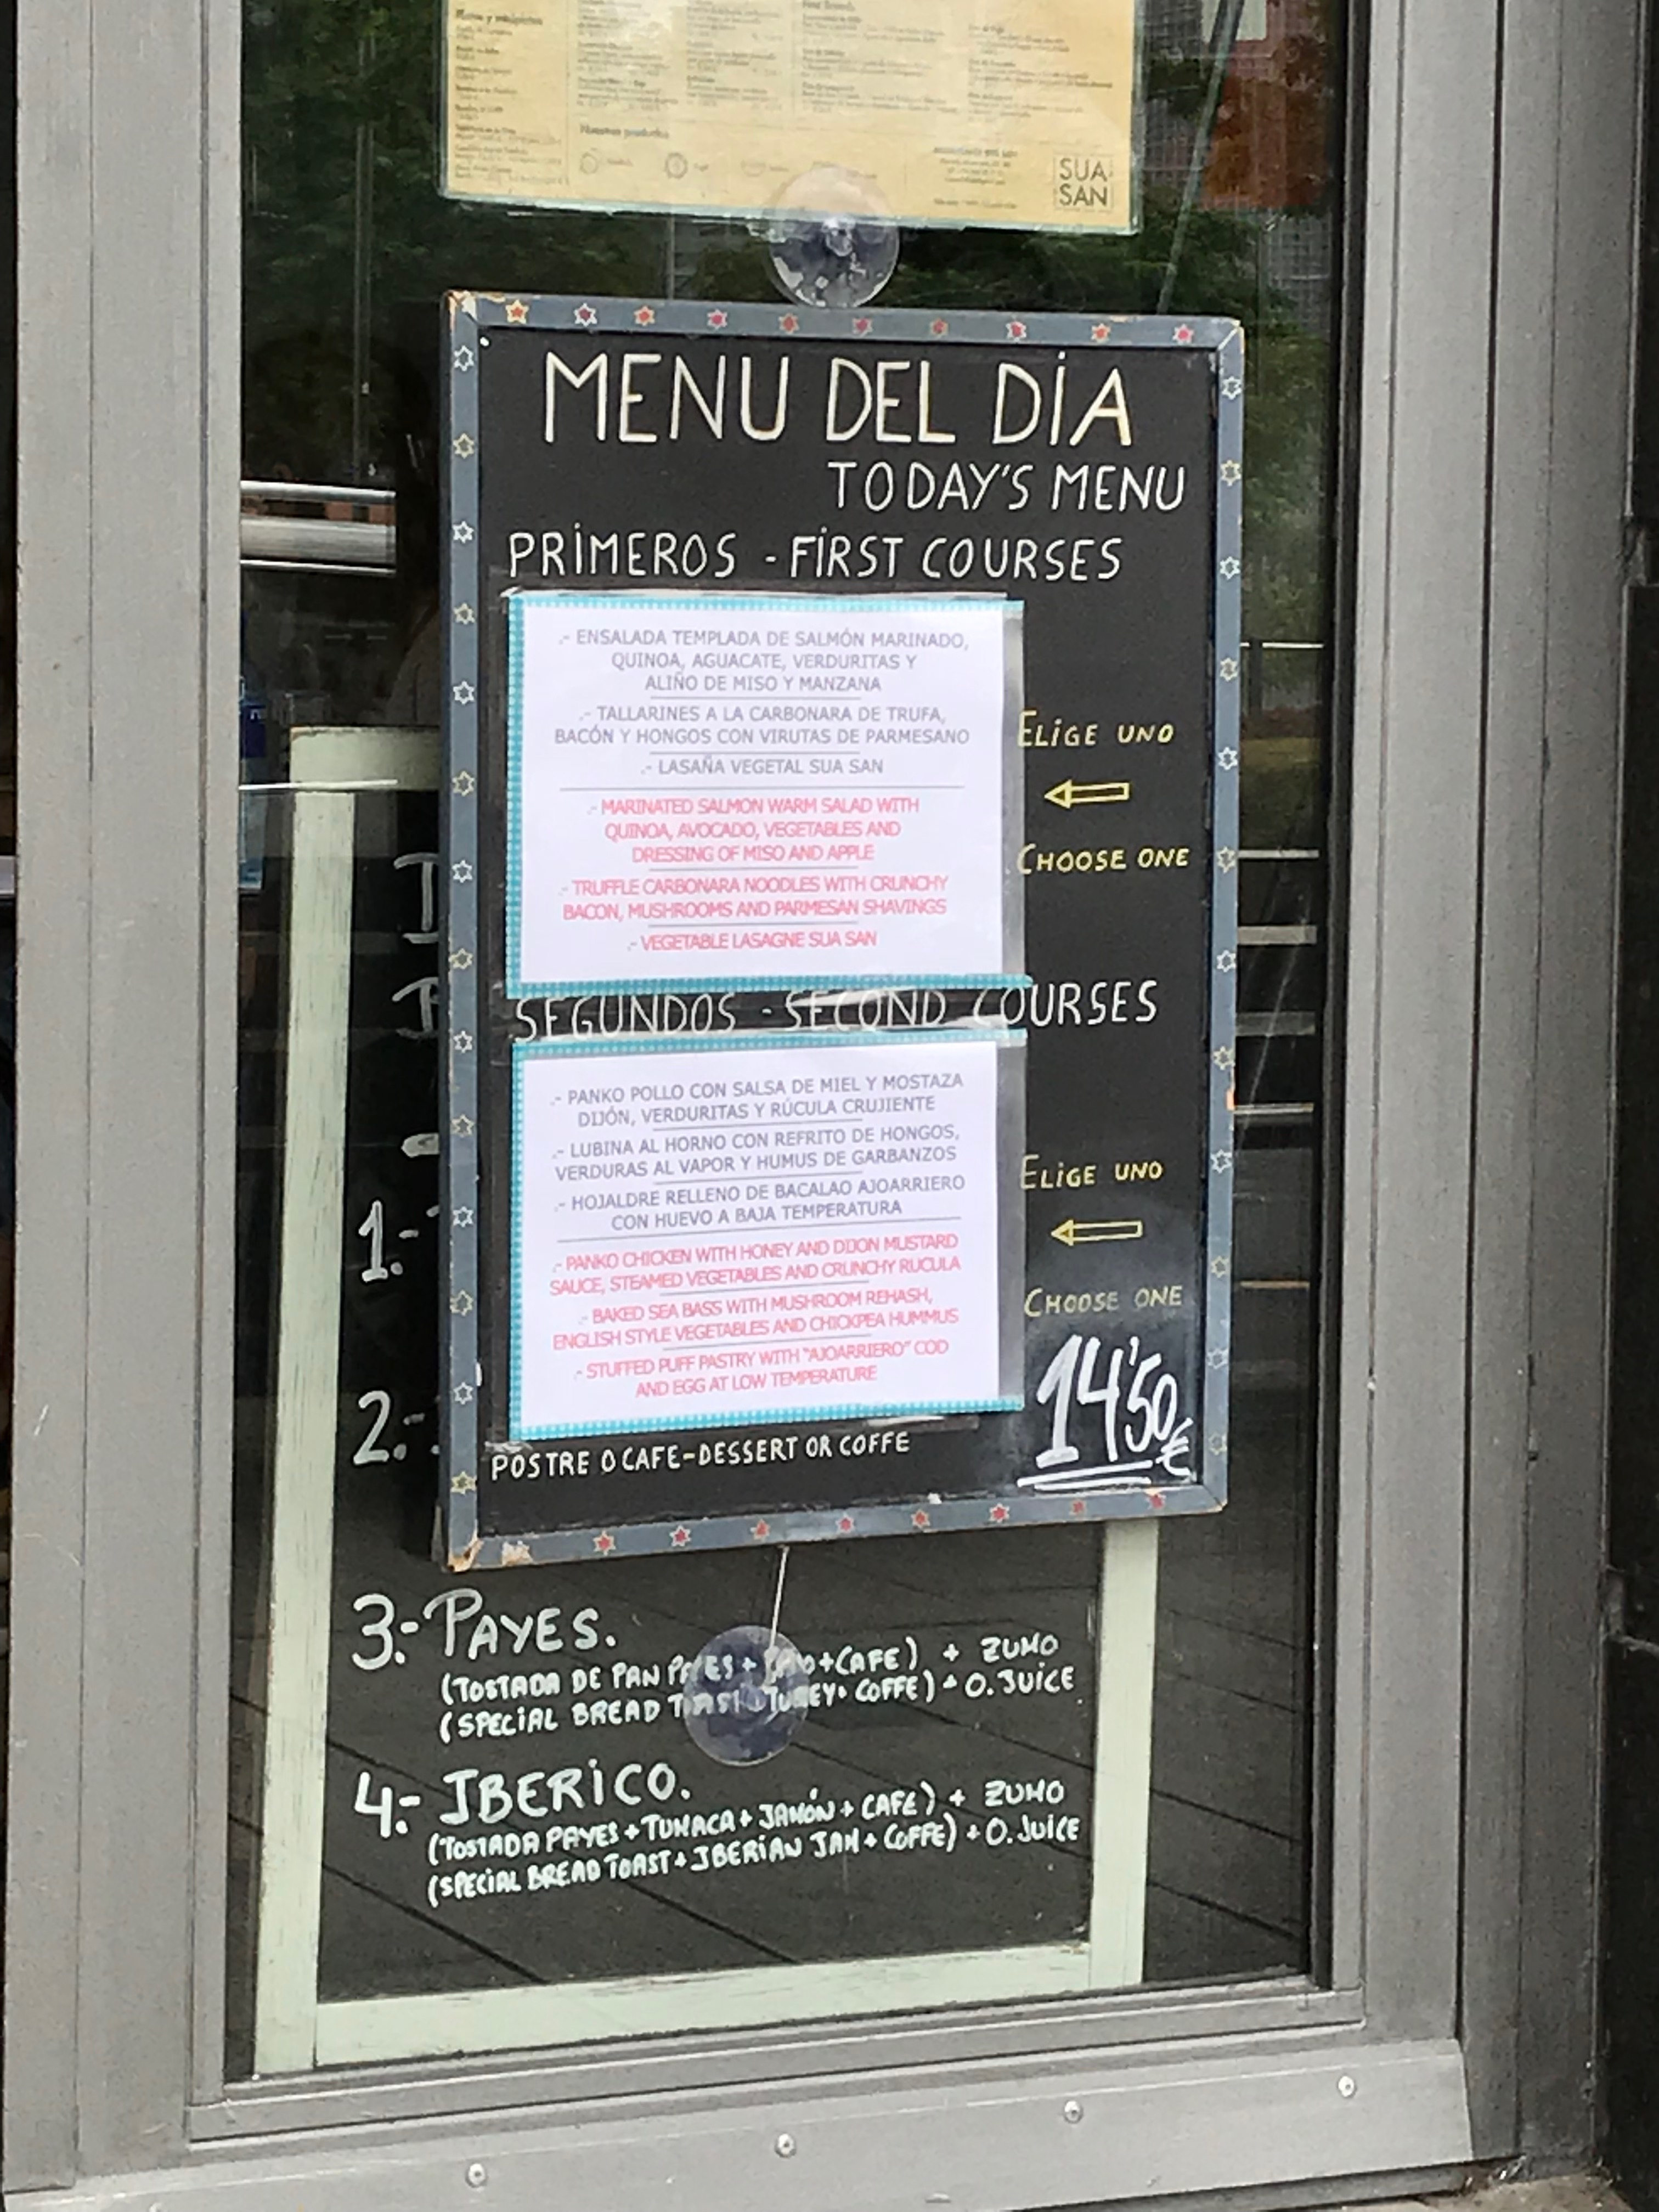 Nuestros productos
SUA
SAN
MENU DEL DÍA
TODAY'S MENU
PRIMEROS - FIRST COURSES
.- ENSALADA TEMPLADA DE SALMÓN MARINADO,
QUINOA, AGUACATE, VERDURITAS Y
ALIÑO DE MISO Y MANZANA
.- TALLARINES A LA CARBONARA DE TRUFA,
BACÓN Y HONGOS CON VIRUTAS DE PARMESANO
.- LASAÑA VEGETAL SUA SAN
.- MARINATED SALMON WARM SALAD WITH
QUINOA, AVOCADO, VEGETABLES AND
DRESSING OF MISO AND APPLE
.- TRUFFLE CARBONARA NOODLES WITH CRUNCHY
BACON, MUSHROOMS AND PARMESAN SHAVINGS
.- VEGETABLE LASAGNE SUA SAN
ELIGE UNO
CHOOSE ONE
SEGUNDOS - SECOND COURSES
.- PANKO POLLO CON SALSA DE MIEL Y MOSTAZA
DIJÓN, VERDURITAS Y RÚCULA CRUJIENTE
.- LUBINA AL HORNO CON REFRITO DE HONGOS,
VERDURAS AL VAPOR Y HUMUS DE GARBANZOS
.- HOJALDRE RELLENO DE BACALAO AJOARRIERO
CON HUEVO A BAJA TEMPERATURA
.- PANKO CHICKEN WITH HONEY AND DIJON MUSTARD
SAUCE, STEAMED VEGETABLES AND CRUNCHY RUCULA
.- BAKED SEA BASS WITH MUSHROOM REHASH,
ENGLISH STYLE VEGETABLES AND CHICKPEA HUMMUS
.- STUFFED PUFF PASTRY WITH "AJOARRIERO" COD
AND EGG AT LOW TEMPERATURE
ELIGE UNO
CHOOSE ONE
14'50€
POSTRE O CAFE-DESSERT OR COFFE
1.-
2.-
3.- PAYES.
(TOSTADA DE PAN PAYES + +CAFE) + ZUMO
(SPECIAL BREAD TOAST + COFFE) + O.JUICE
4.- IBERICO.
(TOSTADA PAYES + TUMACA + JAMÓN + CAFE) + ZUMO
(SPECIAL BREAD TOAST + IBERIAN JAM + COFFE) + O.JUICE